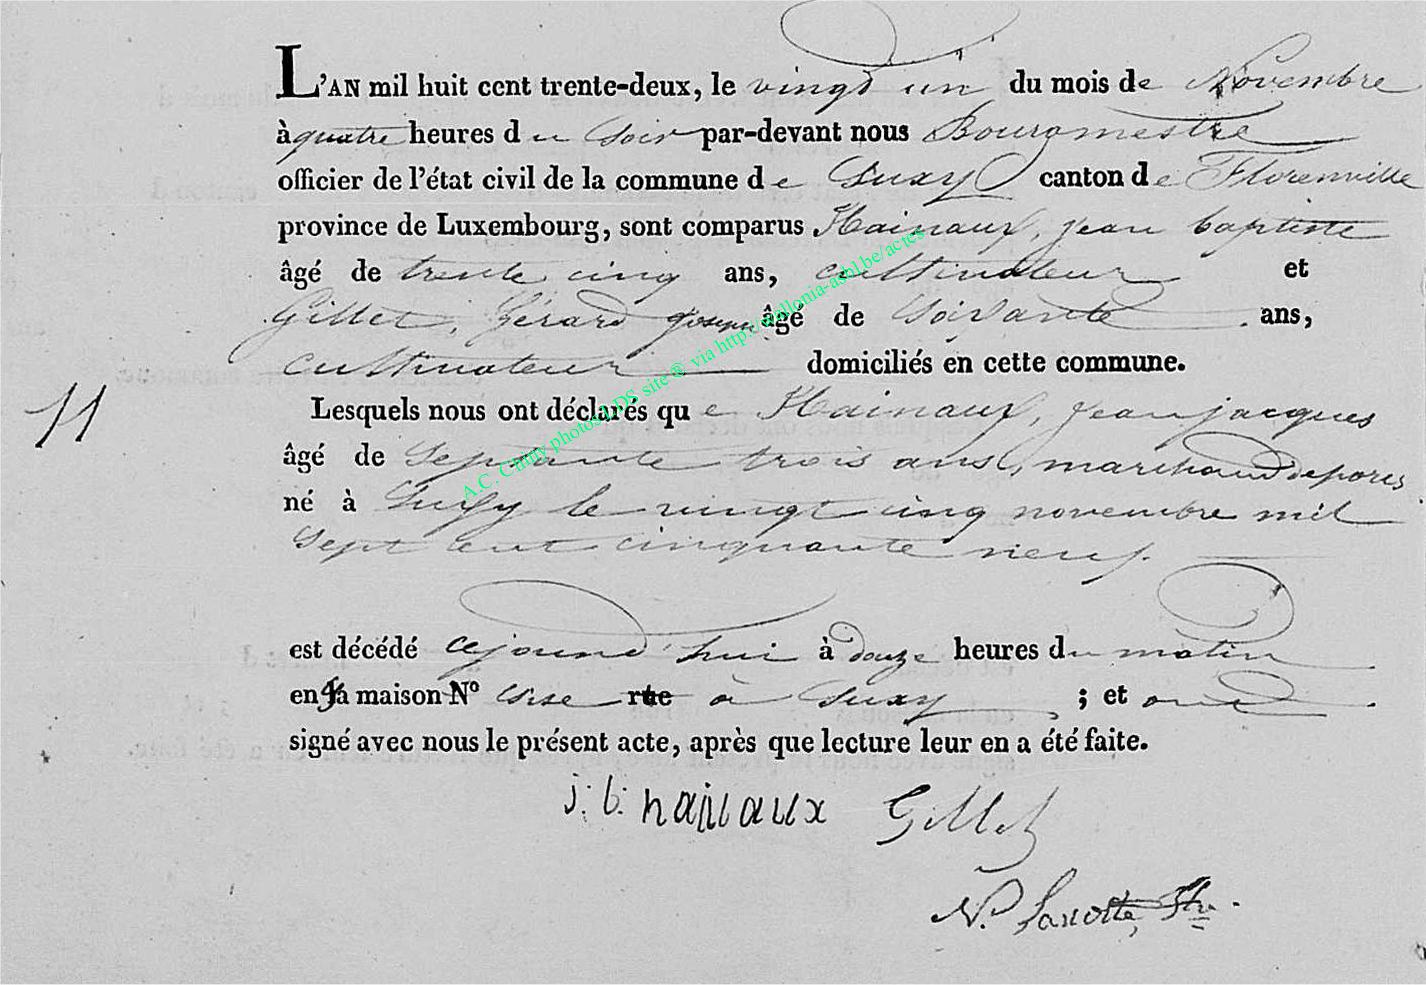 L'AN mil huit cent trente-deux, le vingt un du mois de Novembre
à quatre heures du Soir par-devant nous Bourgmestre
officier de l'état civil de la commune de Suxy canton de Florenville
province de Luxembourg, sont comparus Hainaux, jean baptiste
âgé de trente cinq ans, cultivateur et
Gillet, Gérard joseph âgé de Soixante ans,
cultivateur domiciliés en cette commune.
11
Lesquels nous ont déclarés que Hainaux, jean jacques
âgé de Septante trois ans, marchand de porcs
né à Suxy le vingt cinq novembre mil
Sept cent cinquante neuf.
est décédé cejourd'hui à douze heures du matin
en sa maison N° sise rue à Suxy ; et ont
signé avec nous le présent acte, après que lecture leur en a été faite.
j: b: hainaux Gillet
A.C. Chiny photos LDS site ® via http://wallonia-asbl.be/actes